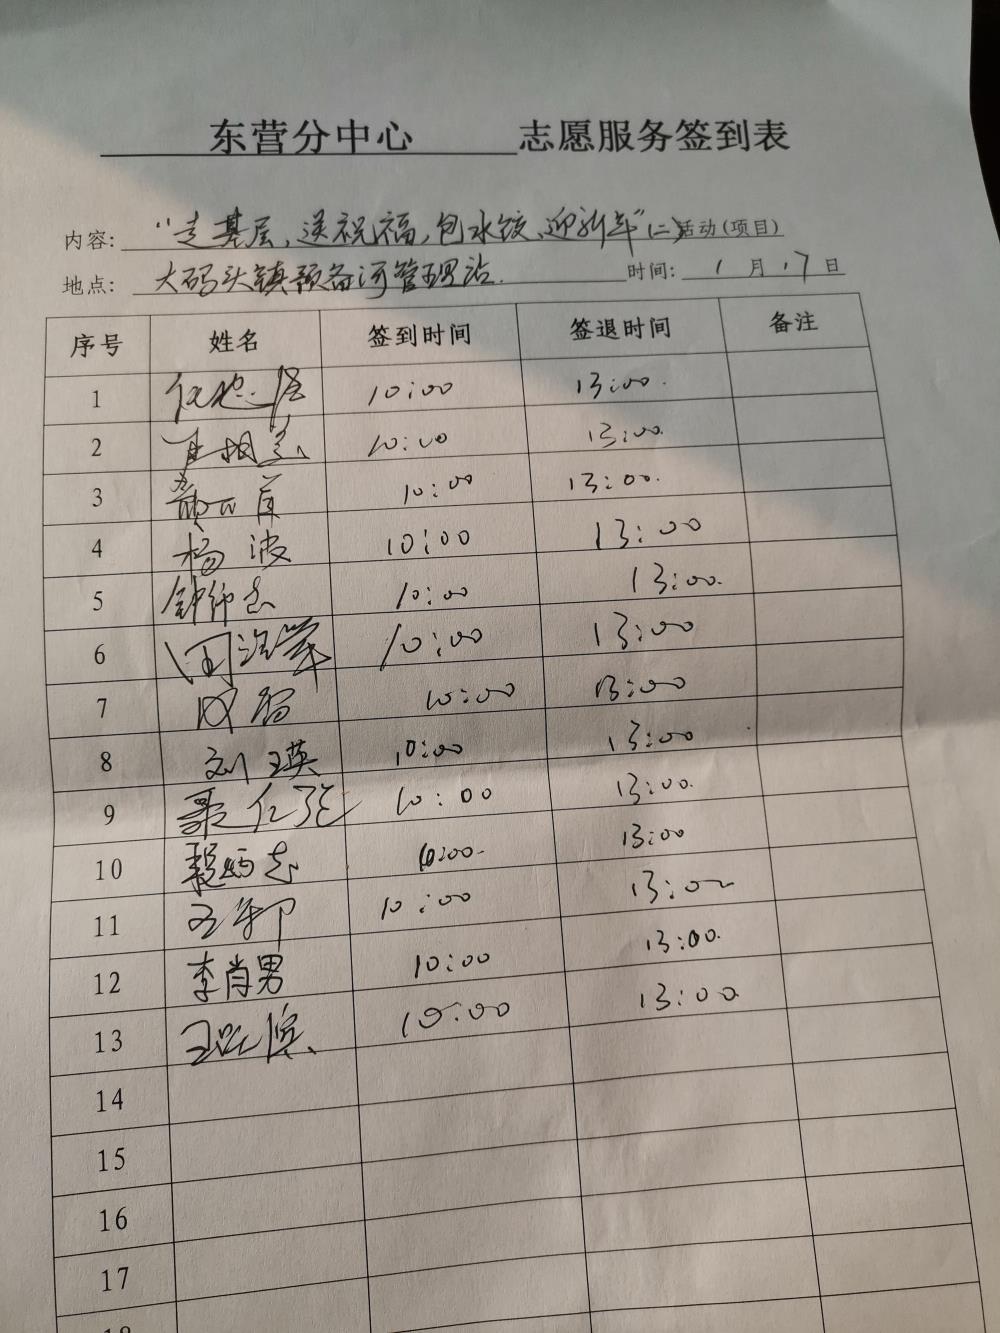 东营分中心 志愿服务签到表
内容: “走基层、送祝福,包水饺、迎新年”(二)活动(项目)
地点: 大码头镇预备河管理站. 时间: 1月17日
序号 姓名 签到时间 签退时间 备注
1 10:00 13:00.
2 10:00 13:00.
3 10:00 13:00.
4 杨波 10:00 13:00
5 10:00 13:00.
6 10:00 13:00
7 10:00 13:00
8 刘瑛 10:00 13:00
9 10:00 13:00.
10 10:00. 13:00
11 10:00 13:00
12 李肖男 10:00 13:00.
13 10:00 13:00
14
15
16
17
18